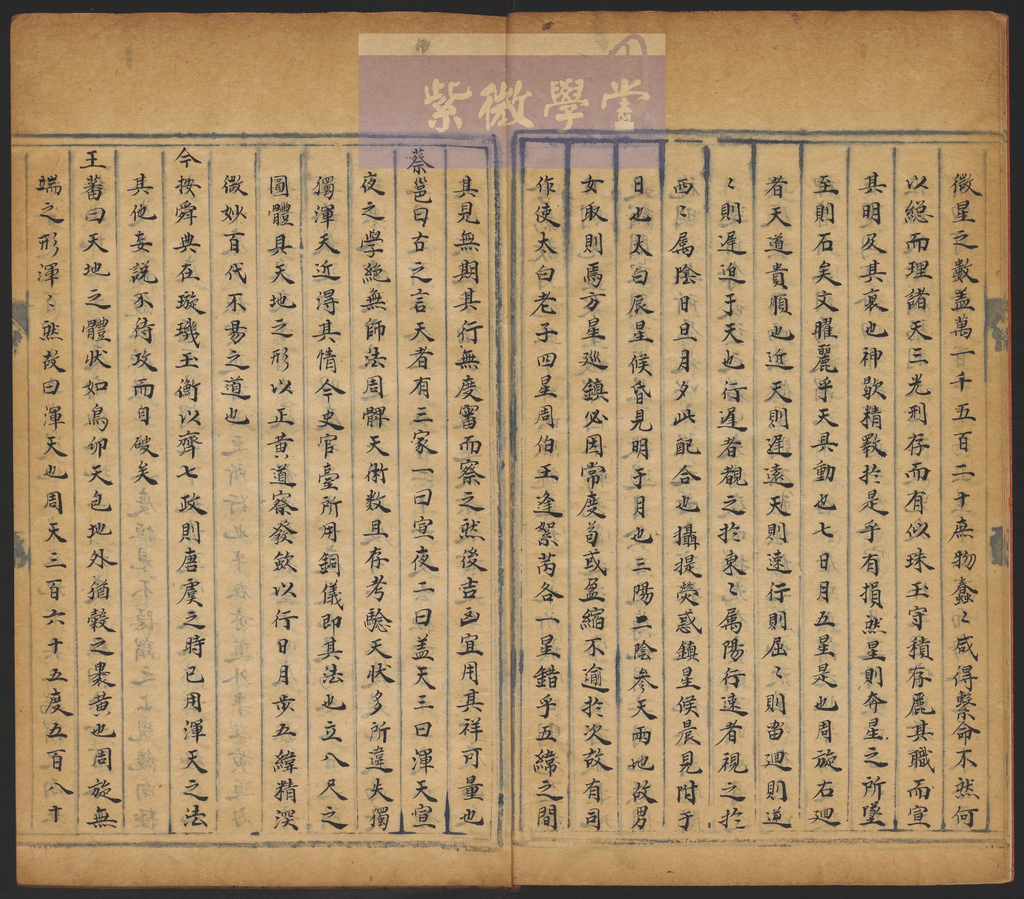 紫微學堂
微星之數盖萬一千五百二十庶物蠢〻咸得繫命不然何
以緫而理諸天三光刑存而有似珠玉守積存麗其職而宣
其明及其衰也神歇精斁於是乎有損然星則奔星之所墜
至則石矣文曜麗乎天具動也七日月五星是也周旋右廻
者天道貴順也近天則遲遠天則速行則屈〻則畄廻則逆
〻則遲迫于天也行遲者觀之於東〻属陽行速者視之於
西〻属陰日旦月夕此配合也攝提熒惑鎮星候晨見附于
日也太白辰星候昏見明于月也三陽二陰参天兩地故男
女取則焉方星巡鎮必因常度苟或盈縮不逾於次故有司
作使太白老子四星周伯王逢絮芮各一星錯乎五緯之間
其見無期其行無度審而察之然後吉凶宜用其祥可量也
蔡邕曰古之言天者有三家一曰宣夜二曰盖天三曰渾天宣
夜之學絶無師法周髀天術数且存考驗天狀多所違失獨
獨渾天近淂其情今史官臺所用銅儀即其法也立八尺之
圓體具天地之形以正黄道察發歛以行日月步五緯精㴱
微妙百代不易之道也
今按舜典在璇璣玉衡以齊七政則唐虞之時已用渾天之法
其他妄說不待攻而自破矣
王蕃曰天地之體狀如鳥卵天包地外猶殼之裹黄也周旋無
端之形渾〻然故曰渾天也周天三百六十五度五百八十